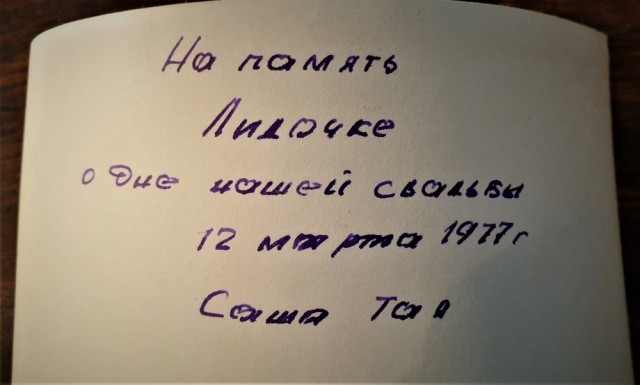 На память
Лидочке
о дне нашей свадьбы
12 марта 1977г
Саша Тая